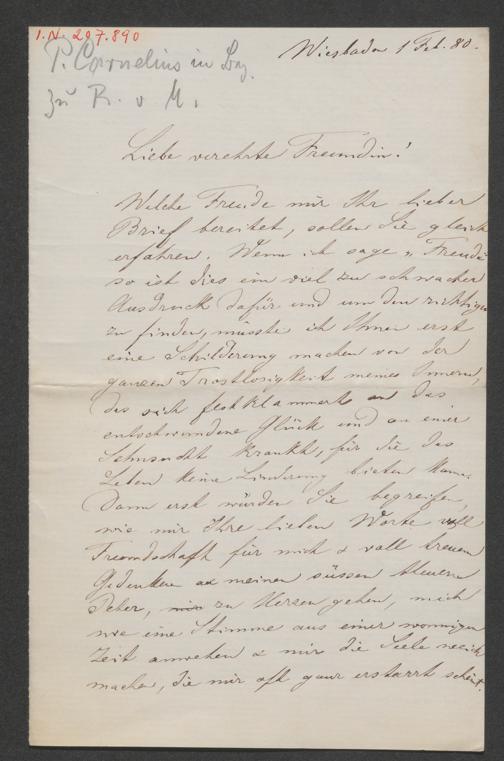 I.N. 207.890
P. Cornelius in Brg.
zu R. v M.
Wiesbaden 1 Feb. 80.
Liebe verehrte Freundin!
Welche Freude mir Ihr lieber
Brief bereitet, sollen Sie gleich
erfahren. Wenn ich sage „Freude
so ist dies ein viel zu schwacher
Ausdruck dafür und um den richtigen
zu finden, müsste ich Ihnen erst
eine Schilderung machen von der
ganzen Trostlosigkeit meines Innern,
das sich festklammert an das
entschwundene Glück und an einer
Sehnsucht krankt, für die das
Leben keine Linderung bieten kann.
Dann erst würden Sie begreifen,
wie mir Ihre lieben Worte voll
Freundschaft für mich & voll treuem
Gedenken an meinen süssen theuern
Peter, zu Herzen gehen, mich
wie eine Stimme aus einer wonnigen
Zeit anwehen & mir die Seele weich
machen, die mir oft ganz erstarrt scheint.